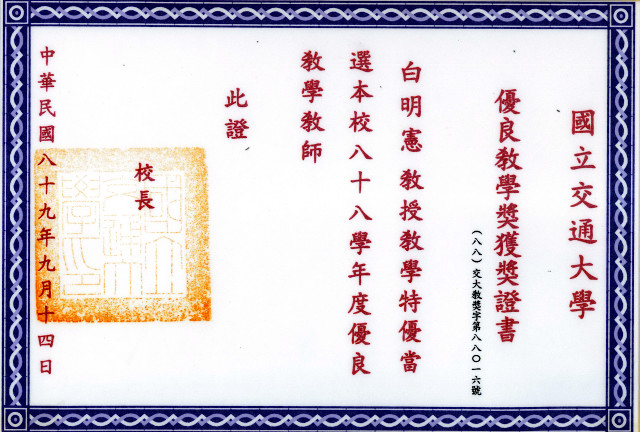 國立交通大學
優良教學獎獲獎證書
(八八)交大教獎字第八八〇一六號
白明憲教授教學特優當
選本校八十八學年度優良
教學教師
此證
校長
中華民國八十九年九月十四日